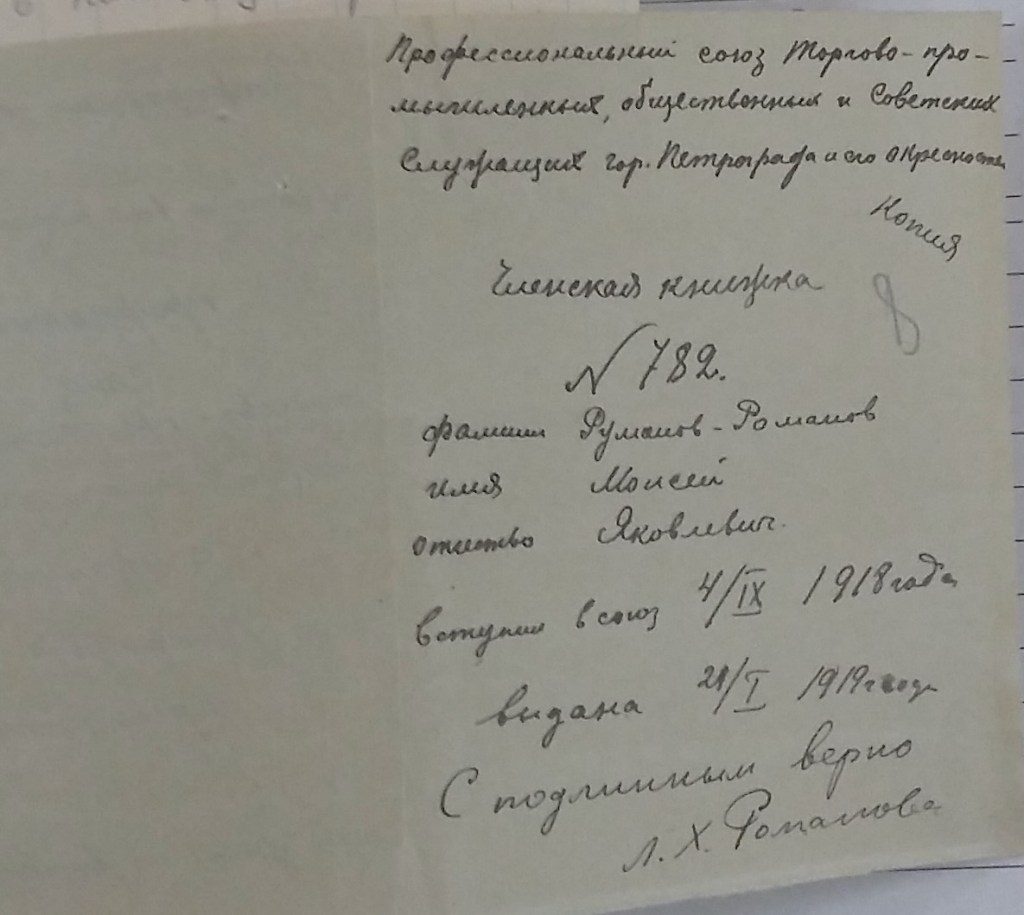 Профессиональный союз Торгово-про-
мышленных, общественных и Советских
Служащих гор. Петрограда и его окрестностей
Копия
Членская книжка
8
N 782.
фамилия Румянов-Романов
имя Моисей
отчество Яковлевич.
вступил в союз 4/IX 1918 года
выдана 21/I 1919 года
С подлинным верно
Л. Х. Романова